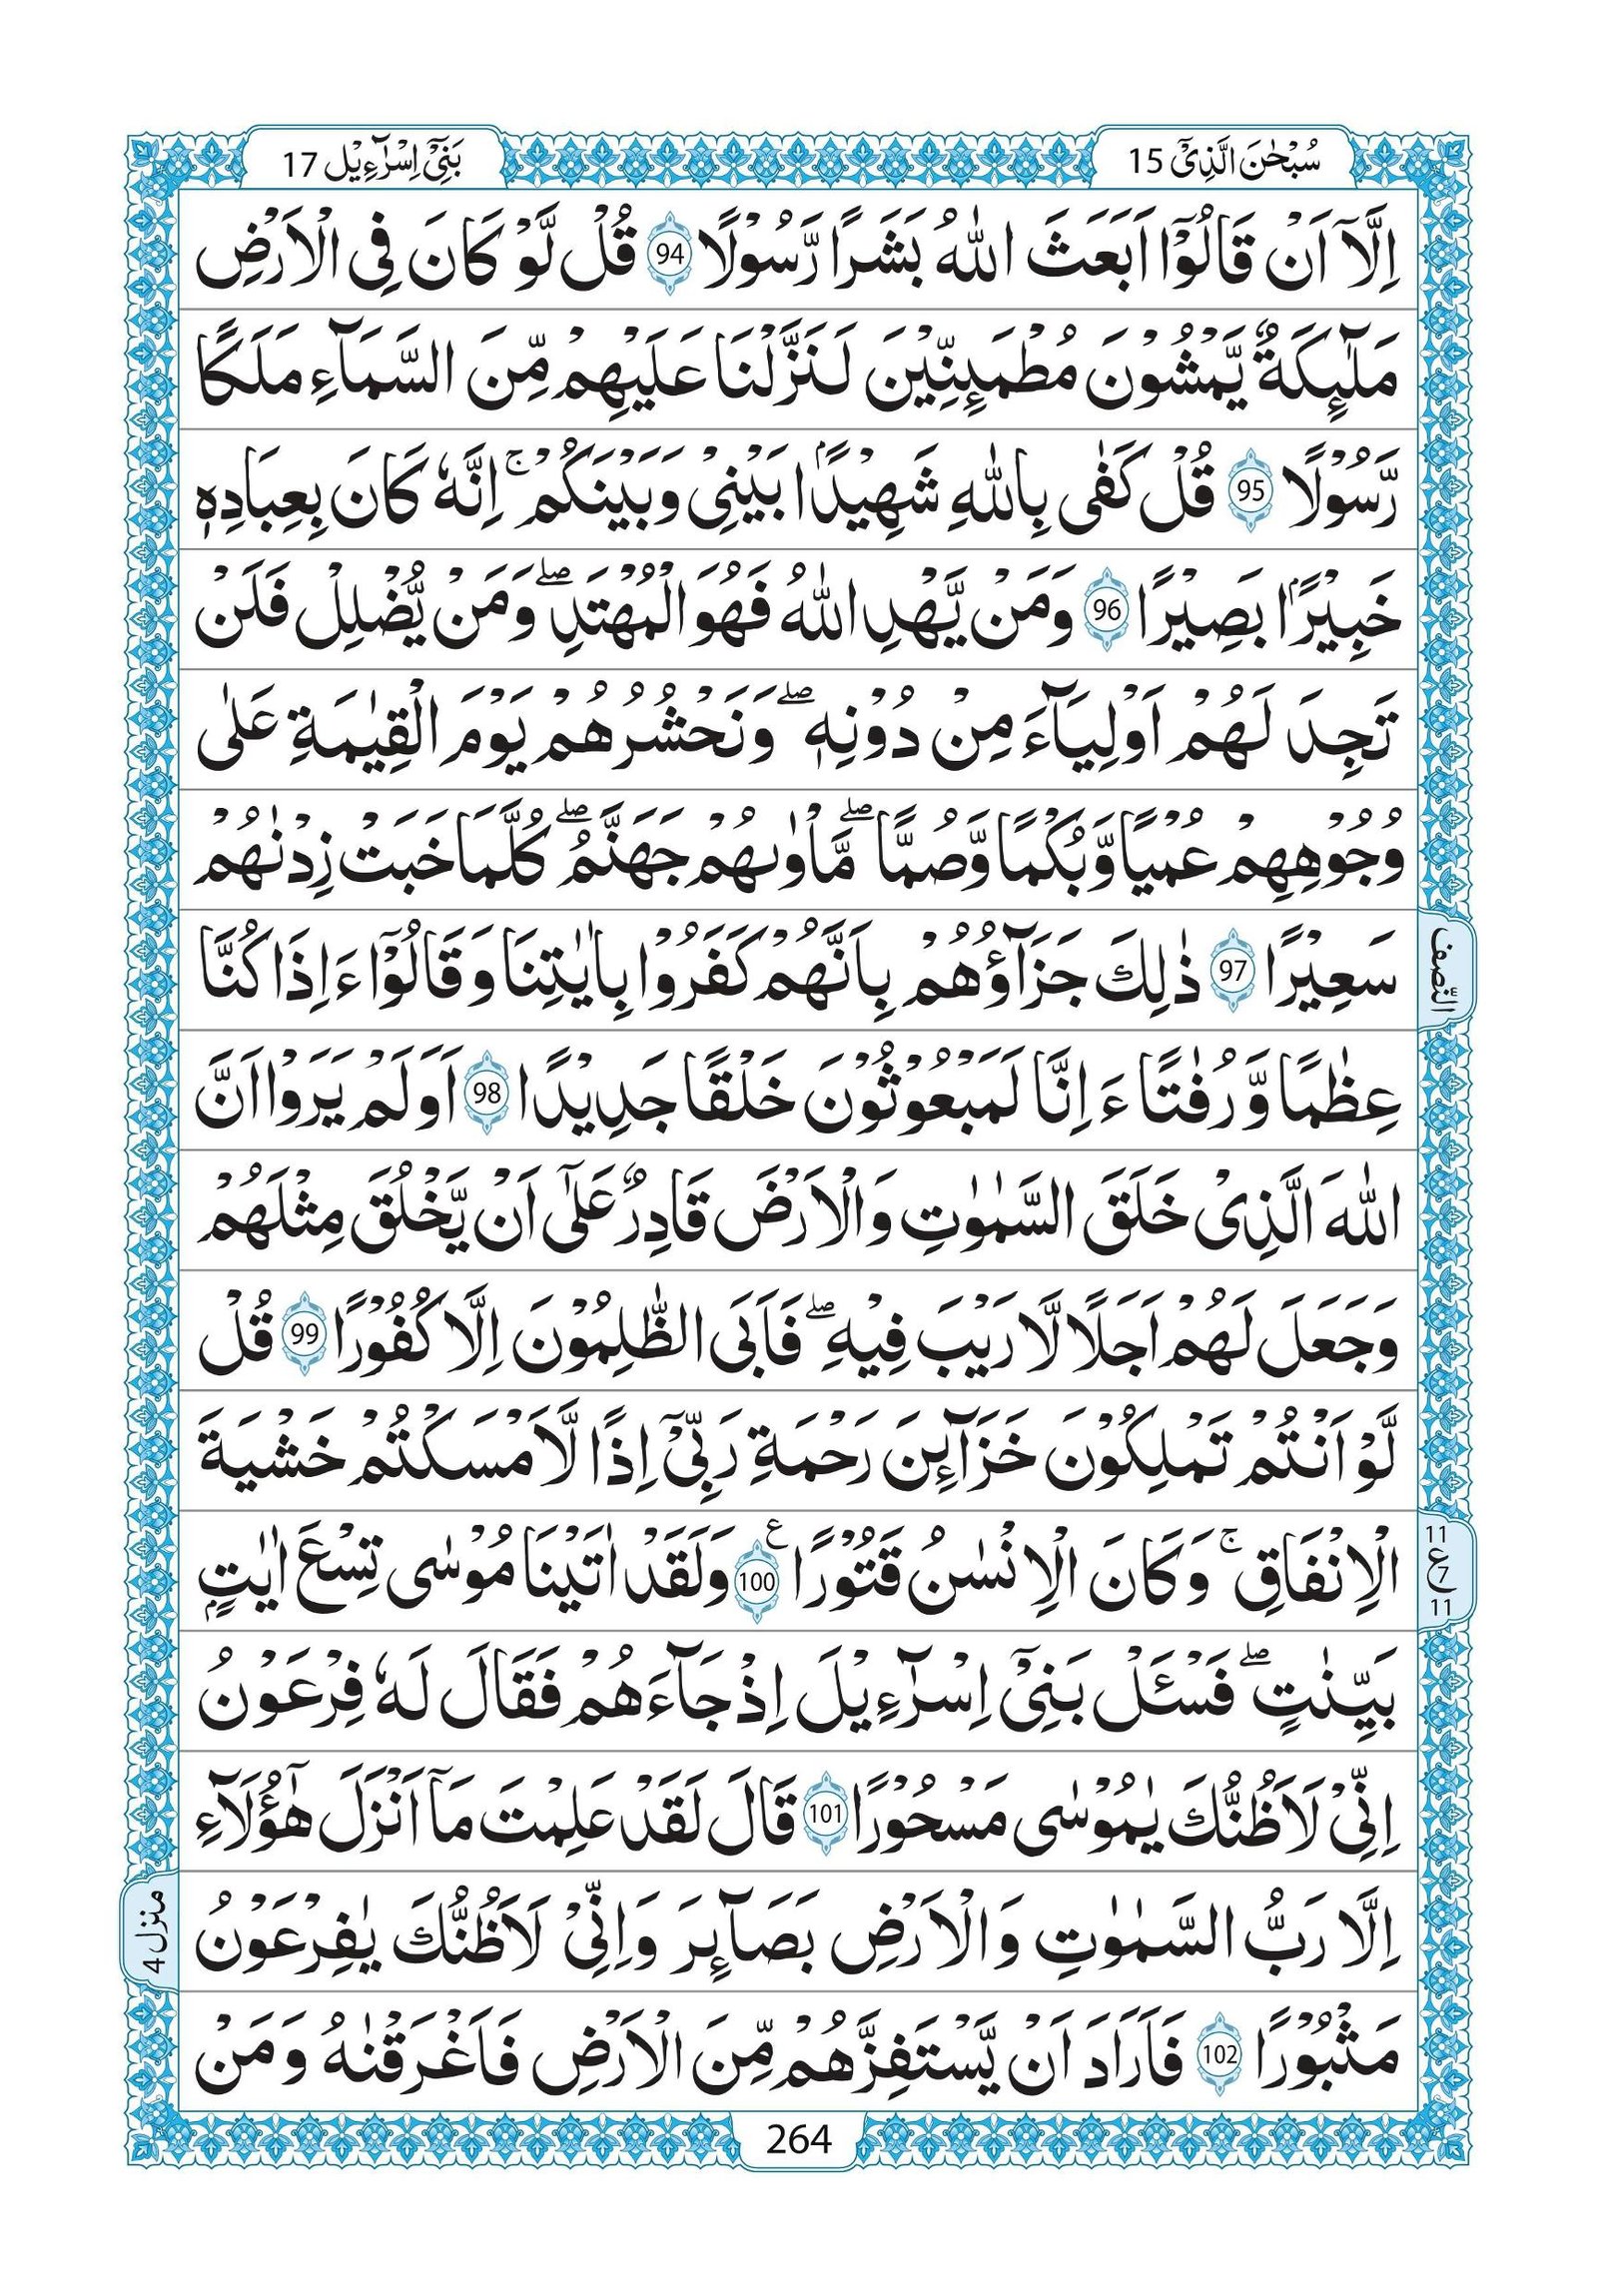 سُبْحٰنَ الَّذِیْۤ 15
بَنِیْۤ اِسْرَآءِیْل 17
اِلَّاۤ اَنْ قَالُوْۤا اَبَعَثَ اللّٰهُ بَشَرًا رَّسُوْلًا 94 قُلْ لَّوْ كَانَ فِی الْاَرْضِ
مَلٰٓىِٕكَةٌ یَّمْشُوْنَ مُطْمَىِٕنِّیْنَ لَنَزَّلْنَا عَلَیْهِمْ مِّنَ السَّمَآءِ مَلَكًا
رَّسُوْلًا 95 قُلْ كَفٰی بِاللّٰهِ شَهِیْدًۢا بَیْنِیْ وَبَیْنَكُمْ ۚ اِنَّهٗ كَانَ بِعِبَادِهٖ
خَبِیْرًۢا بَصِیْرًا 96 وَمَنْ یَّهْدِ اللّٰهُ فَهُوَ الْمُهْتَدِ ۖ وَمَنْ یُّضْلِلْ فَلَنْ
تَجِدَ لَهُمْ اَوْلِیَآءَ مِنْ دُوْنِهٖ ۖ وَنَحْشُرُهُمْ یَوْمَ الْقِیٰمَةِ عَلٰی
وُجُوْهِهِمْ عُمْیًا وَّبُكْمًا وَّصُمًّا ۖ مَّاْوٰىهُمْ جَهَنَّمُ ۖ كُلَّمَا خَبَتْ زِدْنٰهُمْ
سَعِیْرًا 97 ذٰلِكَ جَزَآؤُهُمْ بِاَنَّهُمْ كَفَرُوْا بِاٰیٰتِنَا وَقَالُوْۤا ءَاِذَا كُنَّا
عِظٰمًا وَّرُفٰتًا ءَاِنَّا لَمَبْعُوْثُوْنَ خَلْقًا جَدِیْدًا 98 اَوَلَمْ یَرَوْا اَنَّ
اللّٰهَ الَّذِیْ خَلَقَ السَّمٰوٰتِ وَالْاَرْضَ قَادِرٌ عَلٰۤی اَنْ یَّخْلُقَ مِثْلَهُمْ
وَجَعَلَ لَهُمْ اَجَلًا لَّا رَیْبَ فِیْهِ ۖ فَاَبَی الظّٰلِمُوْنَ اِلَّا كُفُوْرًا 99 قُلْ
لَّوْ اَنْتُمْ تَمْلِكُوْنَ خَزَآىِٕنَ رَحْمَةِ رَبِّیْۤ اِذًا لَّاَمْسَكْتُمْ خَشْیَةَ
الْاِنْفَاقِ ۚ وَكَانَ الْاِنْسٰنُ قَتُوْرًا 100 ع وَلَقَدْ اٰتَیْنَا مُوْسٰی تِسْعَ اٰیٰتٍۭ
بَیِّنٰتٍ ۖ فَسْـَٔلْ بَنِیْۤ اِسْرَآءِیْلَ اِذْ جَآءَهُمْ فَقَالَ لَهٗ فِرْعَوْنُ
اِنِّیْ لَاَظُنُّكَ یٰمُوْسٰی مَسْحُوْرًا 101 قَالَ لَقَدْ عَلِمْتَ مَاۤ اَنْزَلَ هٰۤؤُلَآءِ
اِلَّا رَبُّ السَّمٰوٰتِ وَالْاَرْضِ بَصَآىِٕرَ وَاِنِّیْ لَاَظُنُّكَ یٰفِرْعَوْنُ
مَثْبُوْرًا 102 فَاَرَادَ اَنْ یَّسْتَفِزَّهُمْ مِّنَ الْاَرْضِ فَاَغْرَقْنٰهُ وَمَنْ
النّصف
11
ع 7
11
منزل 4
264